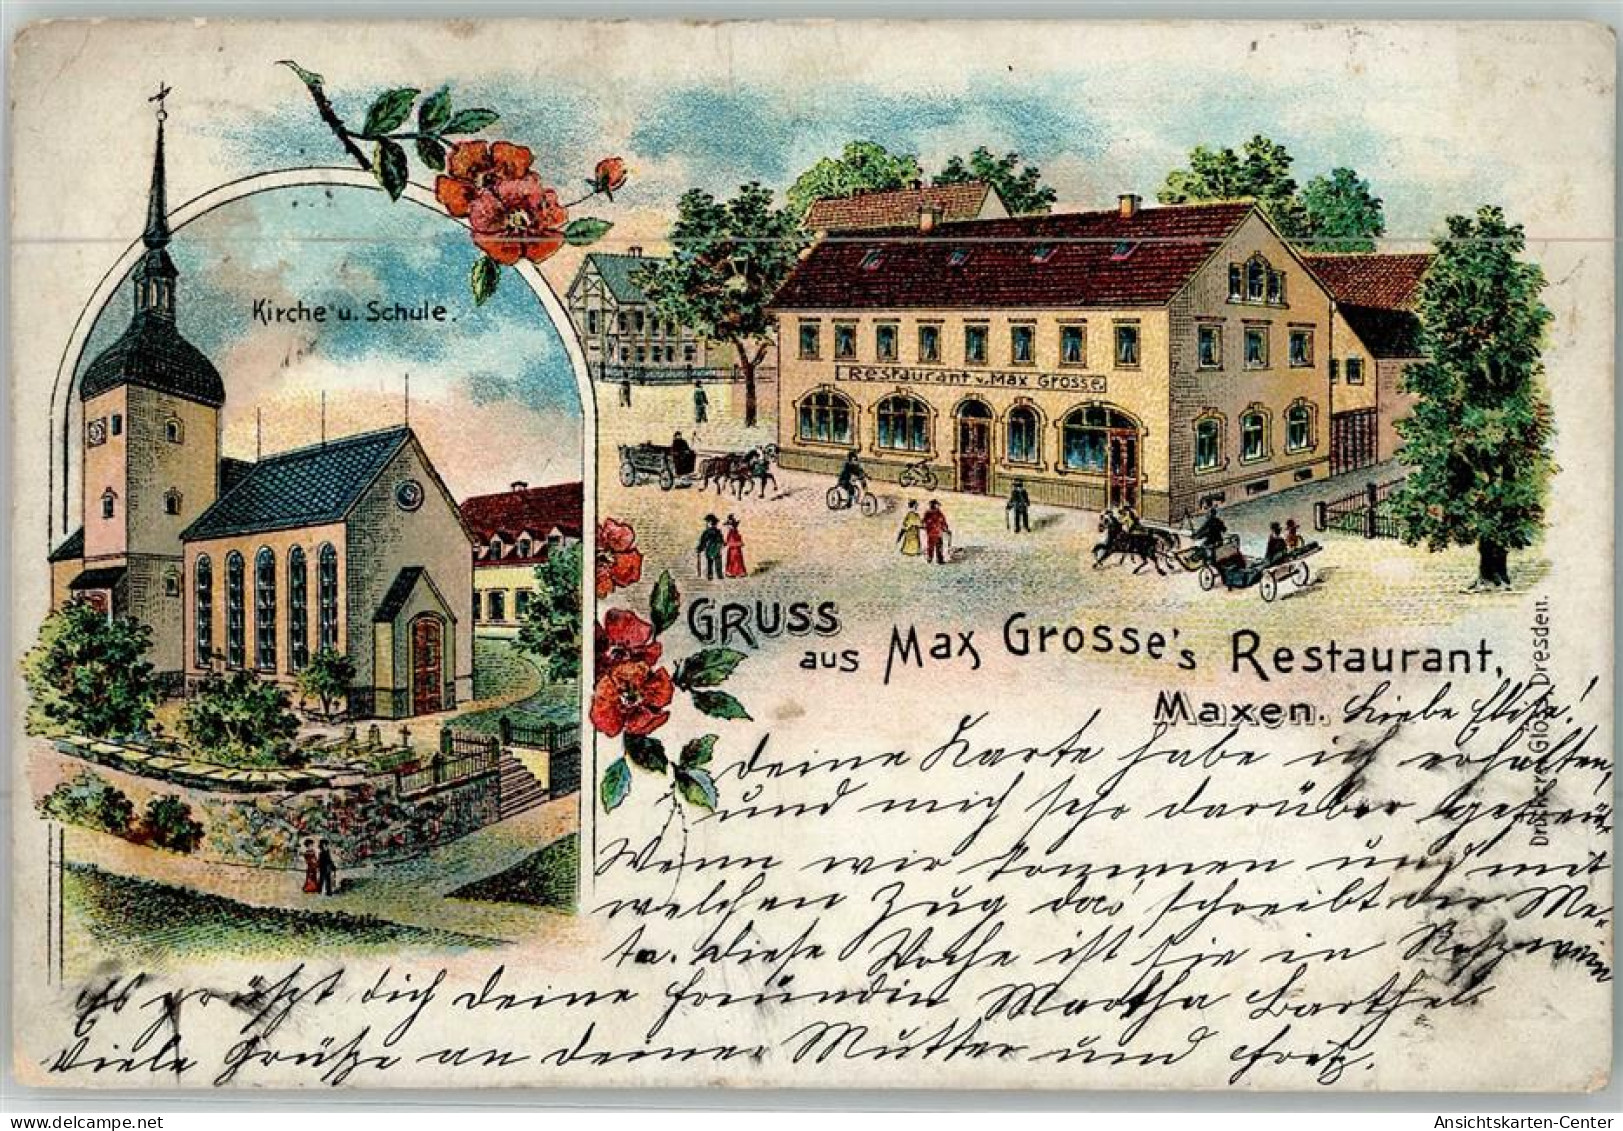 Kirche u. Schule.
Restaurant v. Max Grosse.
GRUSS
aus Max Grosse's Restaurant,
Maxen.
Liebe Elise!
Deine Karte habe ich erhalten,
und mich sehr darüber gefreut
Wenn wir kommen und mit
welchen Zug das schreibt der Me-
ta. Diese Woche ist sie in Roßwein
Es grüßt dich deine Freundin Martha Barthel
Viele Grüße an deine Mutter und Fritz.
Dresden.
www.ansichtskarten-center.de
Ansichtskarten-Center